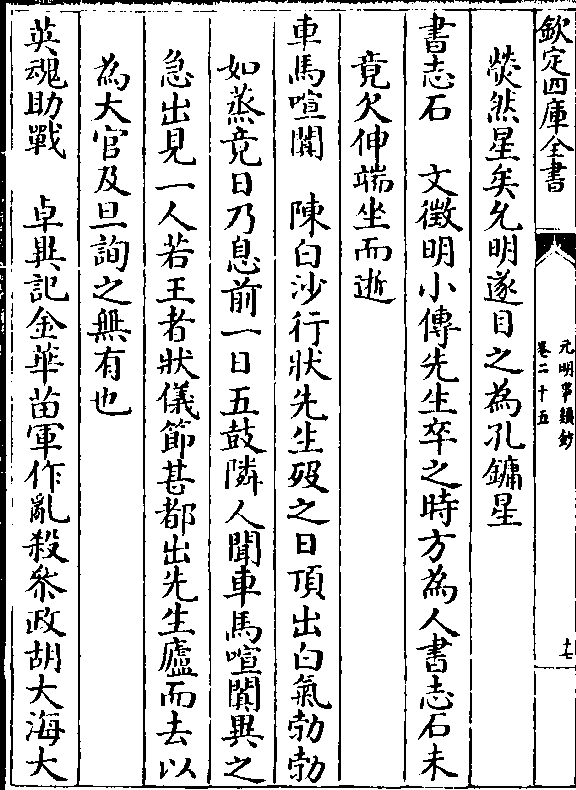 欽定四庫全書
元明事類鈔
卷二十五
十七
熒然星矣允明遂目之為孔鏞星
書志石　文徵明小傳先生卒之時方為人書志石未
竟欠伸端坐而逝
車馬喧闐　陳白沙行狀先生歿之日頂出白氣勃勃
如蒸竟日乃息前一日五鼓隣人聞車馬喧闐異之
急出見一人若王者狀儀節甚都出先生廬而去以
為大官及旦詢之無有也
英魂助戰　卓異記金華苗軍作亂殺叅政胡大海大